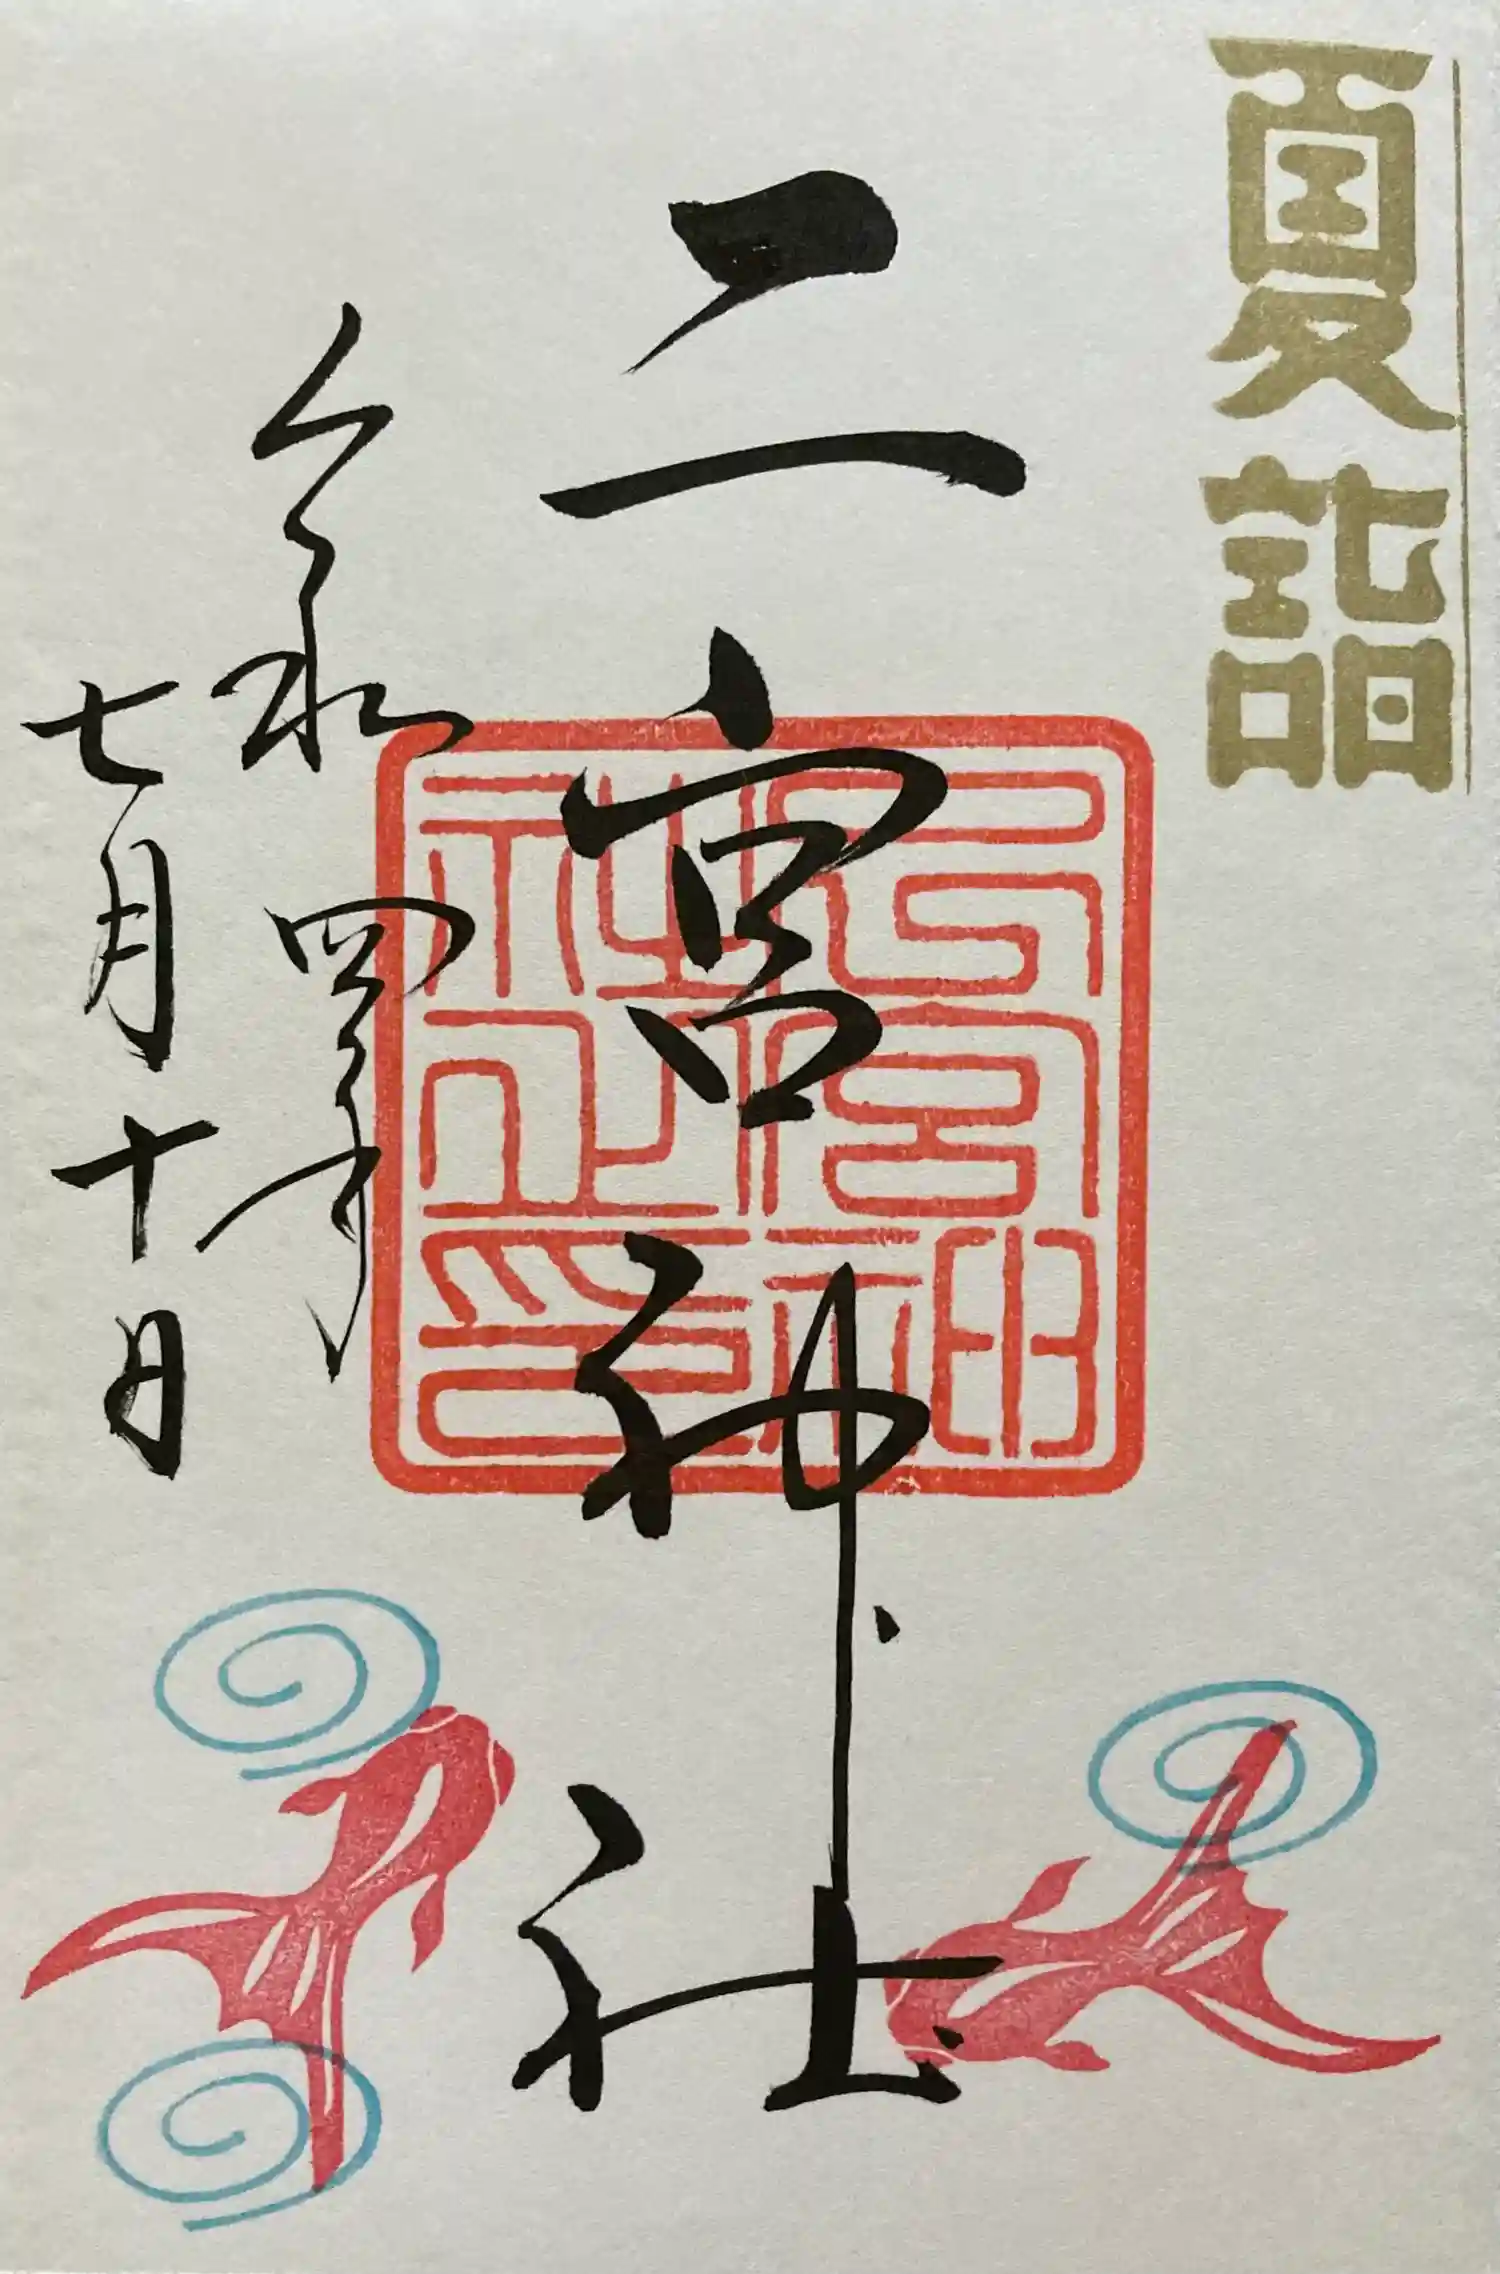 夏詣
二宮神社
令和四年
七月十日